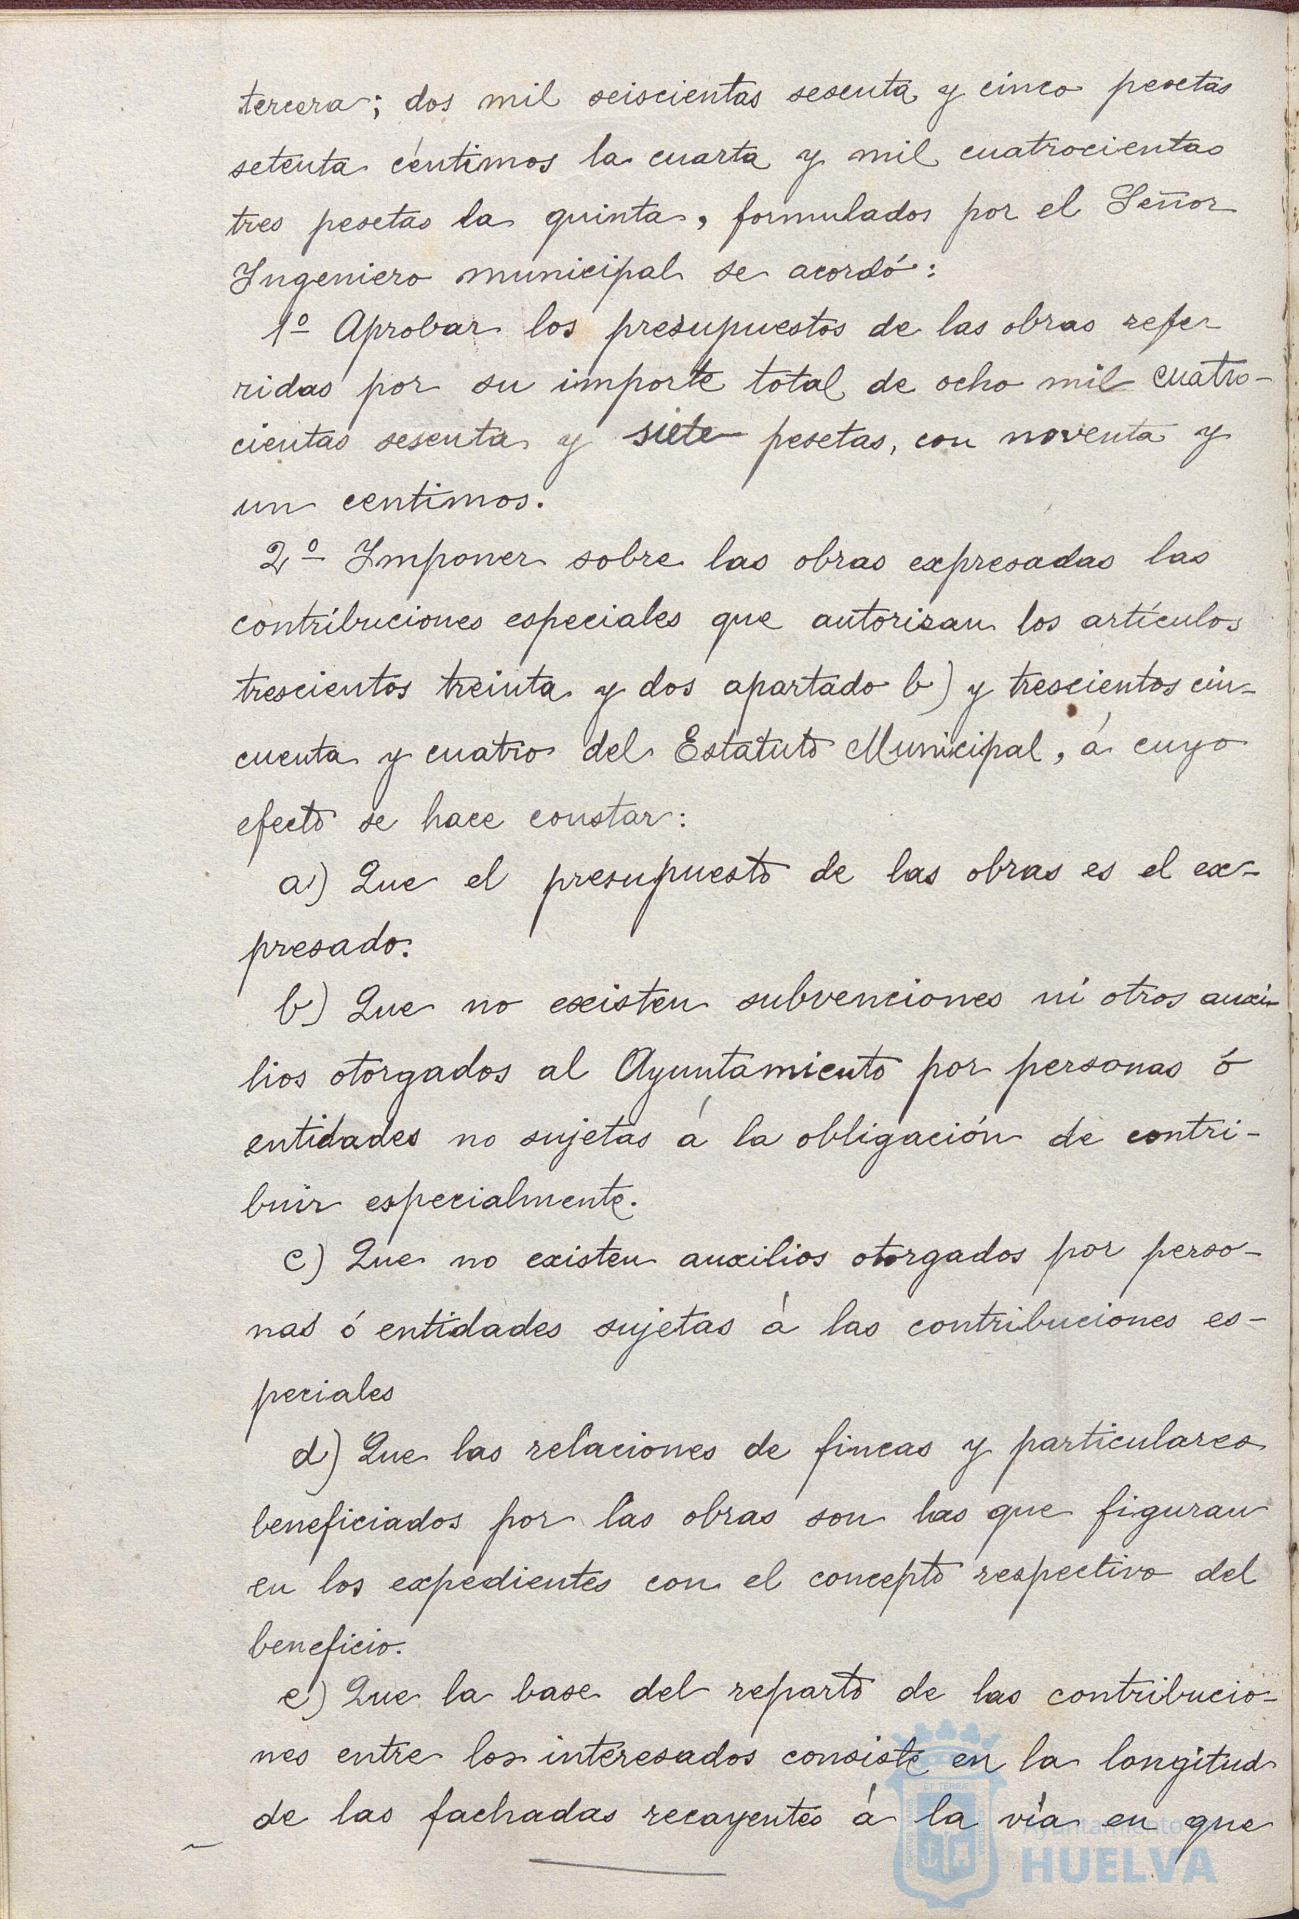 tercera; dos mil seiscientas sesenta y cinco pesetas
setenta céntimos la cuarta y mil cuatrocientas
tres pesetas la quinta, formulados por el Señor
Ingeniero municipal se acordó:
1º Aprobar los presupuestos de las obras refe-
ridas por su importe total de ocho mil cuatro-
cientas sesenta y siete pesetas, con noventa y
un centimos.
2º Imponer sobre las obras expresadas las
contribuciones especiales que autorizan los artículos
trescientos treinta y dos apartado b) y trescientos cin-
cuenta y cuatro del Estatuto Municipal, á cuyo
efecto se hace constar:
a) Que el presupuesto de las obras es el ex-
presado.
b) Que no existen subvenciones ni otros auxi-
lios otorgados al Ayuntamiento por personas ó
entidades no sujetas á la obligación de contri-
buir especialmente.
c) Que no existen auxilios otorgados por perso-
nas ó entidades sujetas á las contribuciones es-
peciales
d) Que las relaciones de fincas y particulares
beneficiados por las obras son las que figuran
en los expedientes con el concepto respectivo del
beneficio.
e) Que la base del reparto de las contribucio-
nes entre los interesados consiste en la longitud
de las fachadas recayentes á la vía en que
Ayuntamiento
HUELVA